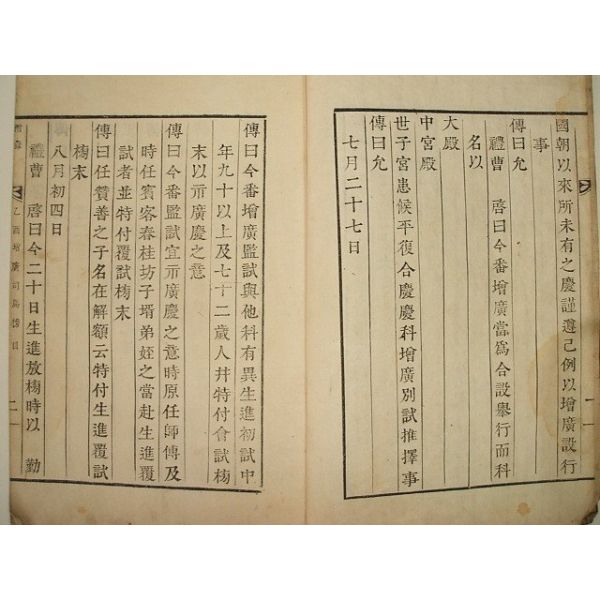 國朝以來所未有之慶謹遵己例以增廣設行
事
傳曰允
禮曹 啓曰今番增廣當爲合設擧行而科
名以
大殿
中宮殿
世子宮患候平復合慶慶科增廣別試推擇事
傳曰允
七月二十七日
傳曰今番增廣監試與他科有異生進初試中
年九十以上及七十二歲人幷特付會試榜
末以示廣慶之意
傳曰今番監試宜示廣慶之意時原任師傅及
時任賓客春桂坊子壻弟姪之當赴生進覆
試者並特付覆試榜末
傳曰任贊善之子名在解額云特付生進覆試
榜末
八月初四日
禮曹 啓曰今二十日生進放榜時以 勤
乙酉增廣司馬榜目 二